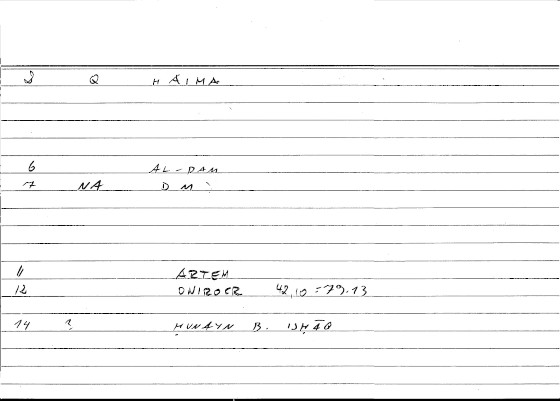 8 Q HAIMA
6 AL-DAM
7 NA DM
11 ARTEM
12 ONIROCR 42,10 = 79.13
14 ? ḤUNAYN B. ISḤĀQ